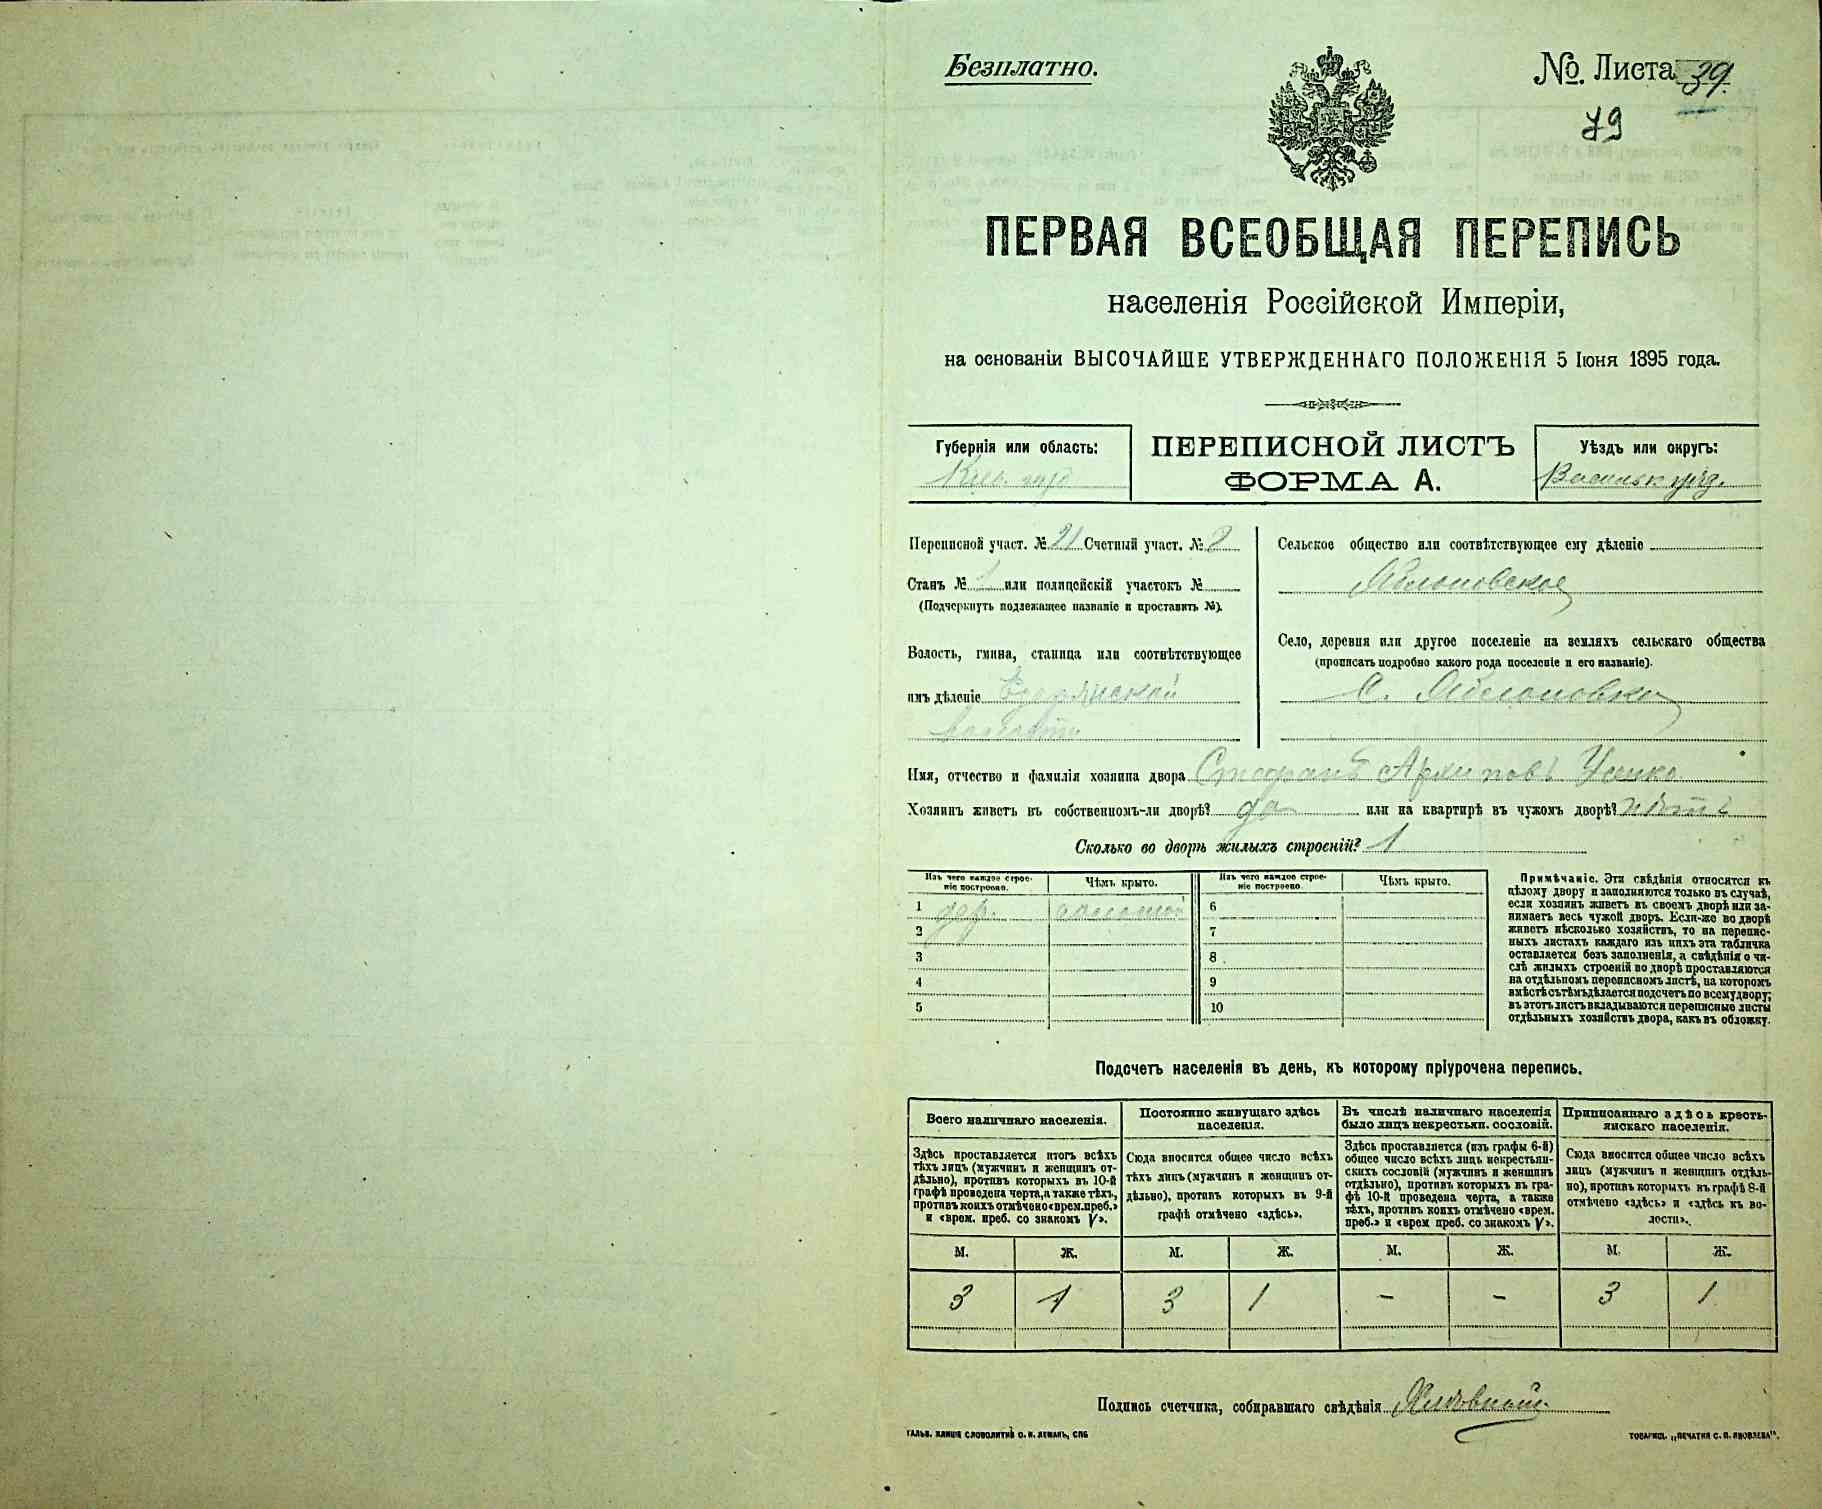 Безплатно.
№. Листа 39.
79
ПЕРВАЯ ВСЕОБЩАЯ ПЕРЕПИСЬ
населенія Россійской Имперіи,
на основаніи ВЫСОЧАЙШЕ УТВЕРЖДЕННАГО ПОЛОЖЕНІЯ 5 Іюня 1895 года.
Губернія или область:
Кіев. губ
ПЕРЕПИСНОЙ ЛИСТЪ
ФОРМА А.
Уѣздъ или округъ:
Васильк уѣзд.
Переписной участ. № 21 Счетный участ. № 2
Станъ № 1 или полицейскій участокъ №
(Подчеркнуть подлежащее названіе и проставить №).
Волость, гмина, станица или соотвѣтствующее
имъ дѣленіе
волости
Сельское общество или соотвѣтствующее ему дѣленіе
Яблоновское
Село, деревня или другое поселеніе на земляхъ сельскаго общества
(прописать подробно какого рода поселеніе и его названіе).
С. Яблоновка
Имя, отчество и фамилія хозяина двора Стефанъ Архиповъ
Хозяинъ живетъ въ собственномъ-ли дворѣ? да или на квартирѣ въ чужомъ дворѣ? нѣтъ
Сколько во дворѣ жилыхъ строеній? 1
Изъ чего каждое строе-
ніе построено.
Чѣмъ крыто.
Изъ чего каждое строе-
ніе построено
Чѣмъ крыто.
1 дер. соломой
2
3
4
5
6
7
8
9
10
Примѣчаніе. Эти свѣдѣнія относятся къ
цѣлому двору и заполняются только въ случаѣ,
если хозяинъ живетъ въ своемъ дворѣ или за-
нимаетъ весь чужой дворъ. Если-же во дворѣ
живетъ нѣсколько хозяйствъ, то на перепис-
ныхъ листахъ каждаго изъ нихъ эта табличка
оставляется безъ заполненія, а свѣдѣнія о чи-
слѣ жилыхъ строеній во дворѣ проставляются
на отдѣльномъ переписномъ листѣ, на которомъ
вмѣстѣ съ тѣмъ дѣлается подсчетъ по всему двору;
въ этотъ листъ вкладываются переписные листы
отдѣльныхъ хозяйствъ двора, какъ въ обложку.
Подсчетъ населенія въ день, къ которому пріурочена перепись.
Всего наличнаго населенія.
Здѣсь проставляется итогъ всѣхъ
тѣхъ лицъ (мужчинъ и женщинъ от-
дѣльно), противъ которыхъ въ 10-й
графѣ проведена черта, а также тѣхъ,
противъ коихъ отмѣчено «врем. преб.»
и «врем. преб. со знакомъ V».
Постоянно живущаго здѣсь
населенія.
Сюда вносится общее число всѣхъ
тѣхъ лицъ (мужчинъ и женщинъ от-
дѣльно), противъ которыхъ въ 9-й
графѣ отмѣчено «здѣсь».
Въ числѣ наличнаго населенія
было лицъ некрестьян. сословій.
Здѣсь проставляется (изъ графы 6-й)
общее число всѣхъ лицъ некрестьян-
скихъ сословій (мужчинъ и женщинъ
отдѣльно), противъ которыхъ въ гра-
фѣ 10-й проведена черта, а также
тѣхъ, противъ коихъ отмѣчено «врем.
преб.» и «врем преб. со знакомъ V».
Приписаннаго здѣсь кресть-
янскаго населенія.
Сюда вносится общее число всѣхъ
лицъ (мужчинъ и женщинъ отдѣль-
но), противъ которыхъ въ графѣ 8-й
отмѣчено «здѣсь» и «здѣсь къ во-
лости».
М. Ж. М. Ж. М. Ж. М. Ж.
3 1 3 1 - - 3 1
Подпись счетчика, собиравшаго свѣдѣнія
ГАЛЬВ. КЛИШЕ СЛОВОЛИТНИ О. И. ЛЕМАНЪ, СПБ
ТОВАРИЩ. „ПЕЧАТНЯ С. П. ЯКОВЛЕВА".